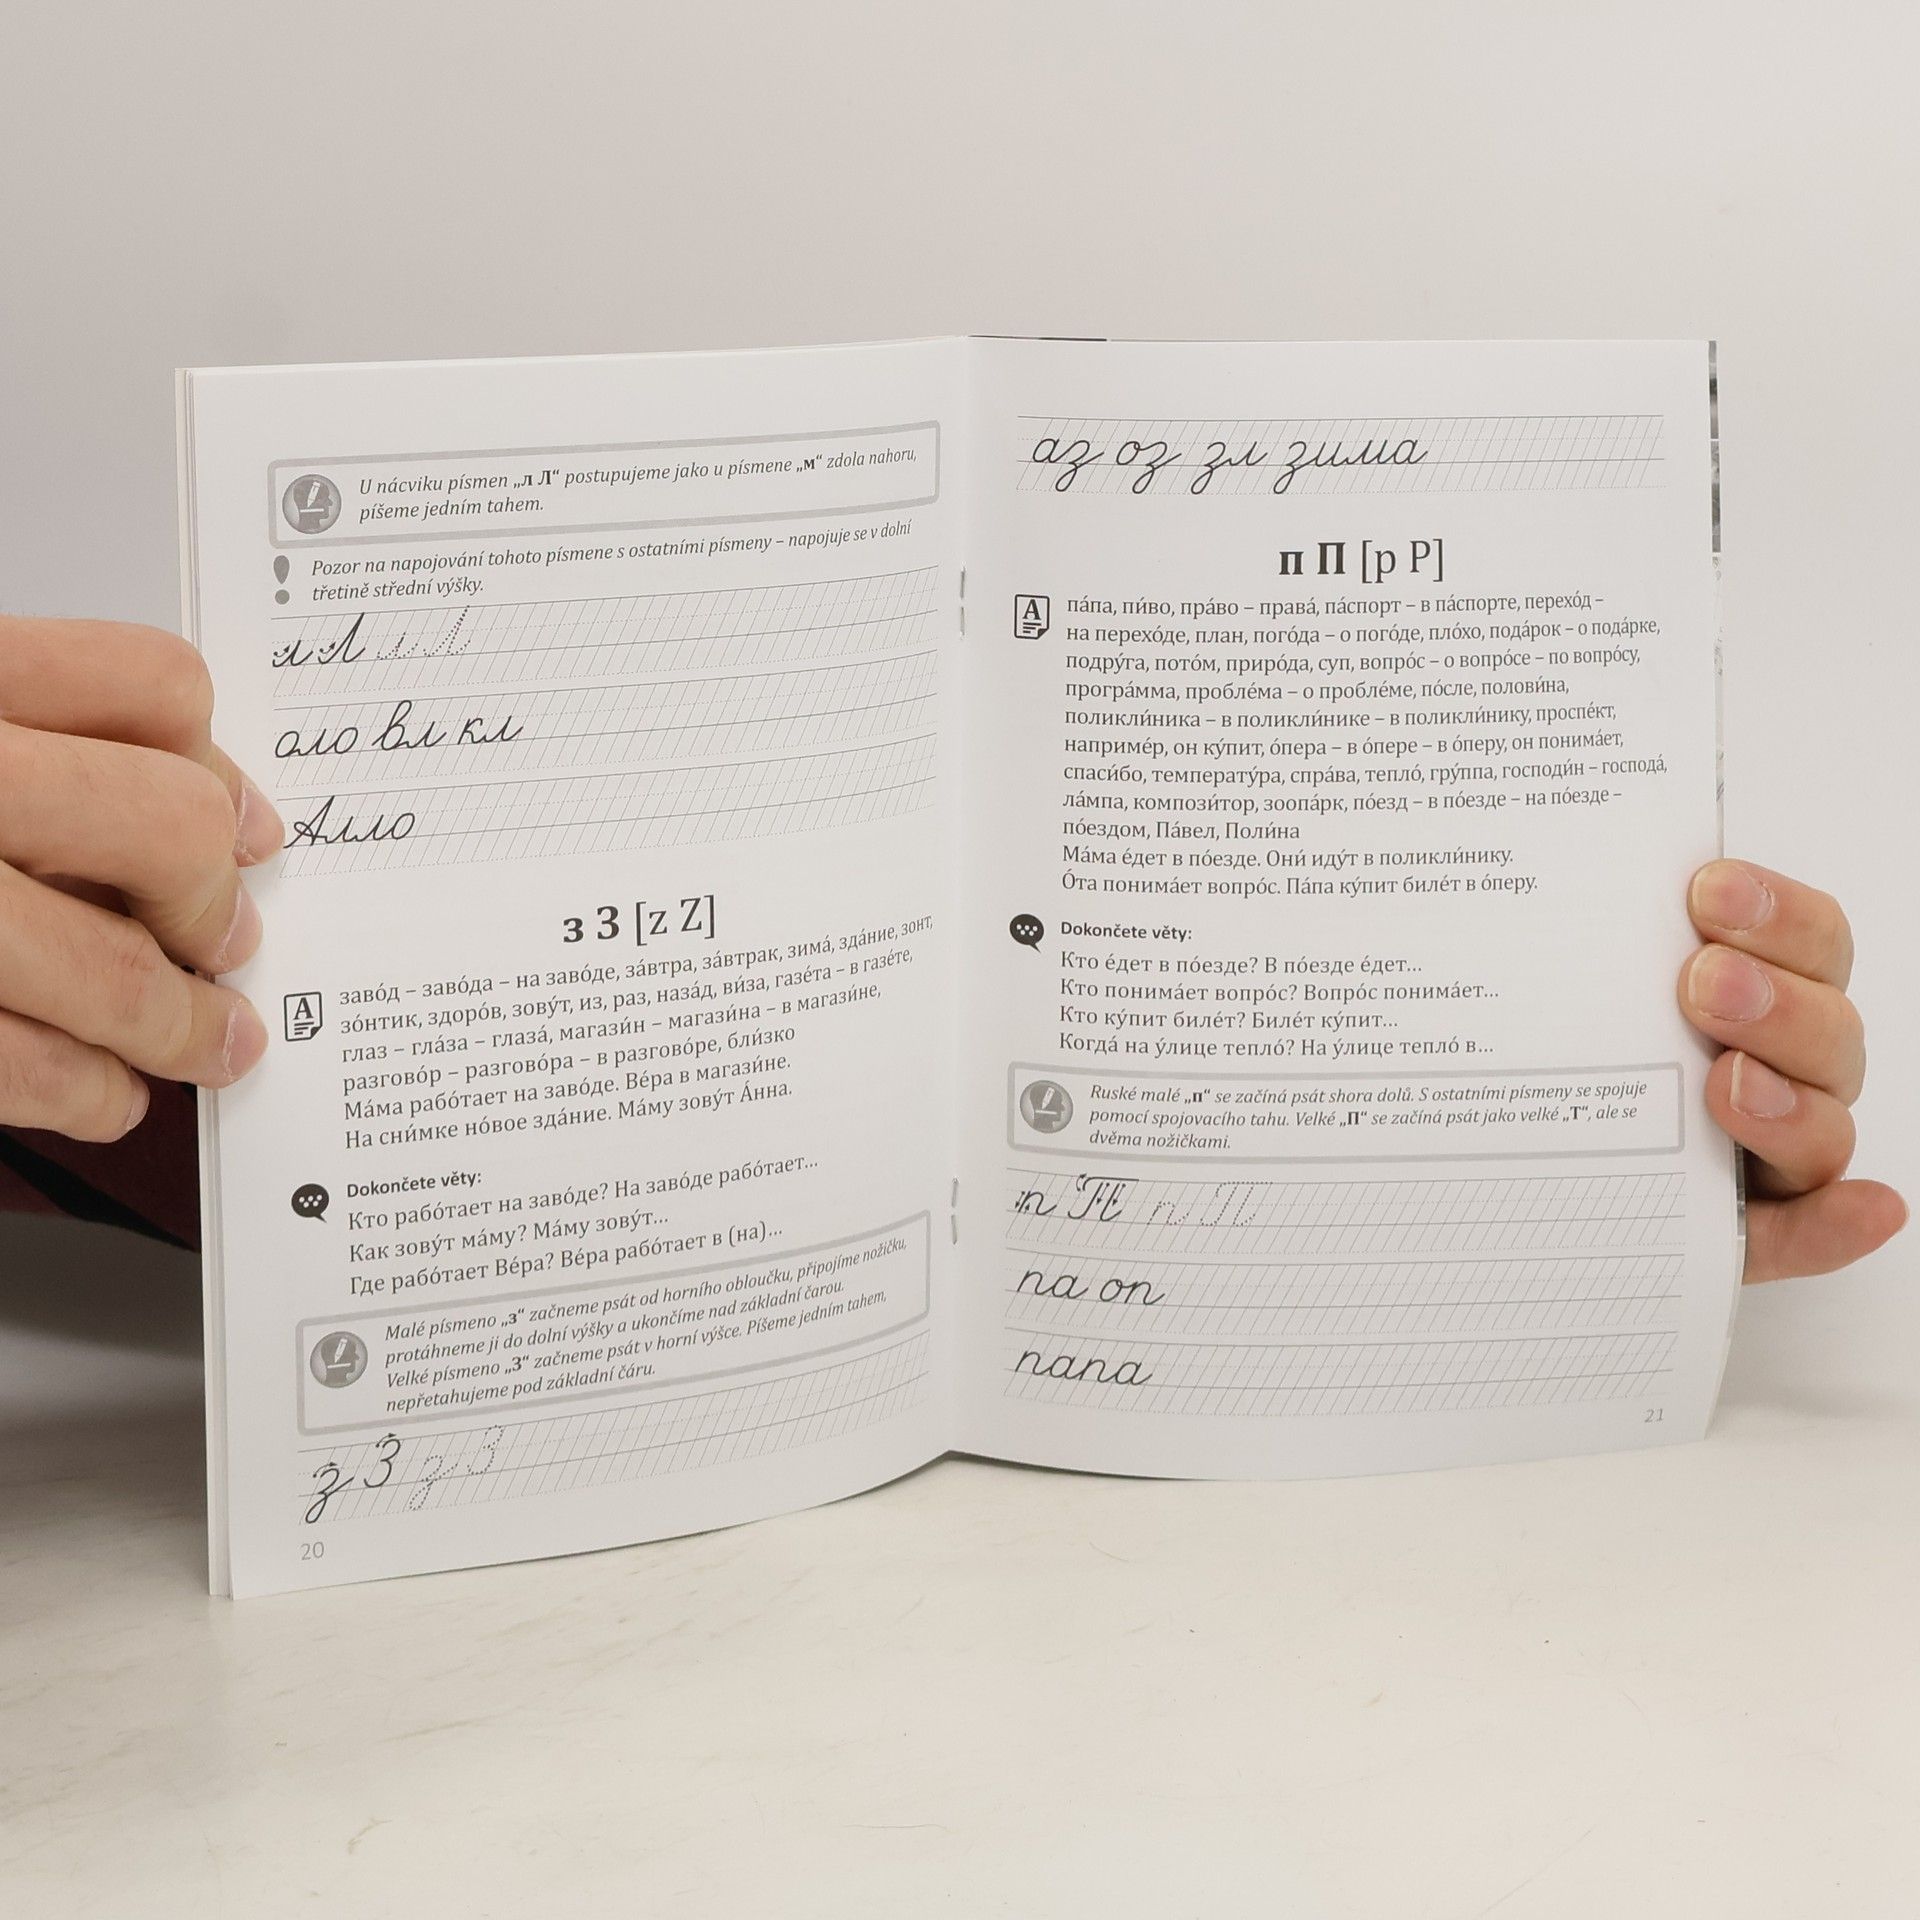 U nácviku písmen „л Л“ postupujeme jako u písmene „м“ zdola nahoru,
píšeme jedním tahem.
Pozor na napojování tohoto písmene s ostatními písmeny – napojuje se v dolní
třetině střední výšky.
л Л л Л
оло вл кл
Алло
з З [z Z]
A
заво́д – заво́да – на заво́де, за́втра, за́втрак, зима́, зда́ние, зонт,
зо́нтик, здоро́в, зову́т, из, раз, наза́д, ви́за, газе́та – в газе́те,
глаз – гла́за – глаза́, магази́н – магази́на – в магази́не,
разгово́р – разгово́ра – в разгово́ре, бли́зко
Ма́ма рабо́тает на заво́де. Ве́ра в магази́не.
На сни́мке но́вое зда́ние. Ма́му зову́т А́нна.
Dokončete věty:
Кто рабо́тает на заво́де? На заво́де рабо́тает...
Как зову́т ма́му? Ма́му зову́т...
Где рабо́тает Ве́ра? Ве́ра рабо́тает в (на)...
Malé písmeno „з“ začneme psát od horního obloučku, připojíme nožičku,
protáhneme ji do dolní výšky a ukončíme nad základní čarou.
Velké písmeno „З“ začneme psát v horní výšce. Píšeme jedním tahem,
nepřetahujeme pod základní čáru.
з З з З
20
аз оз зл зима
п П [p P]
A
па́па, пи́во, пра́во – права́, па́спорт – в па́спорте, перехо́д –
на перехо́де, план, пого́да – о пого́де, пло́хо, пода́рок – о пода́рке,
подру́га, пото́м, приро́да, суп, вопро́с – о вопро́се – по вопро́су,
програ́мма, пробле́ма – о пробле́ме, по́сле, полови́на,
поликли́ника – в поликли́нике – в поликли́нику, проспе́кт,
наприме́р, он ку́пит, о́пера – в о́пере – в о́перу, он понима́ет,
спаси́бо, температу́ра, спра́ва, тепло́, гру́ппа, господи́н – господа́,
ла́мпа, компози́тор, зоопа́рк, по́езд – в по́езде – на по́езде –
по́ездом, Па́вел, Поли́на
Ма́ма е́дет в по́езде. Они́ иду́т в поликли́нику.
О́та понима́ет вопро́с. Па́па ку́пит биле́т в о́перу.
Dokončete věty:
Кто е́дет в по́езде? В по́езде е́дет...
Кто понима́ет вопро́с? Вопро́с понима́ет...
Кто ку́пит биле́т? Биле́т ку́пит...
Когда́ на у́лице тепло́? На у́лице тепло́ в...
Ruské malé „п“ se začíná psát shora dolů. S ostatními písmeny se spojuje
pomocí spojovacího tahu. Velké „П“ se začíná psát jako velké „Т“, ale se
dvěma nožičkami.
п П п П
па оп
папа
21